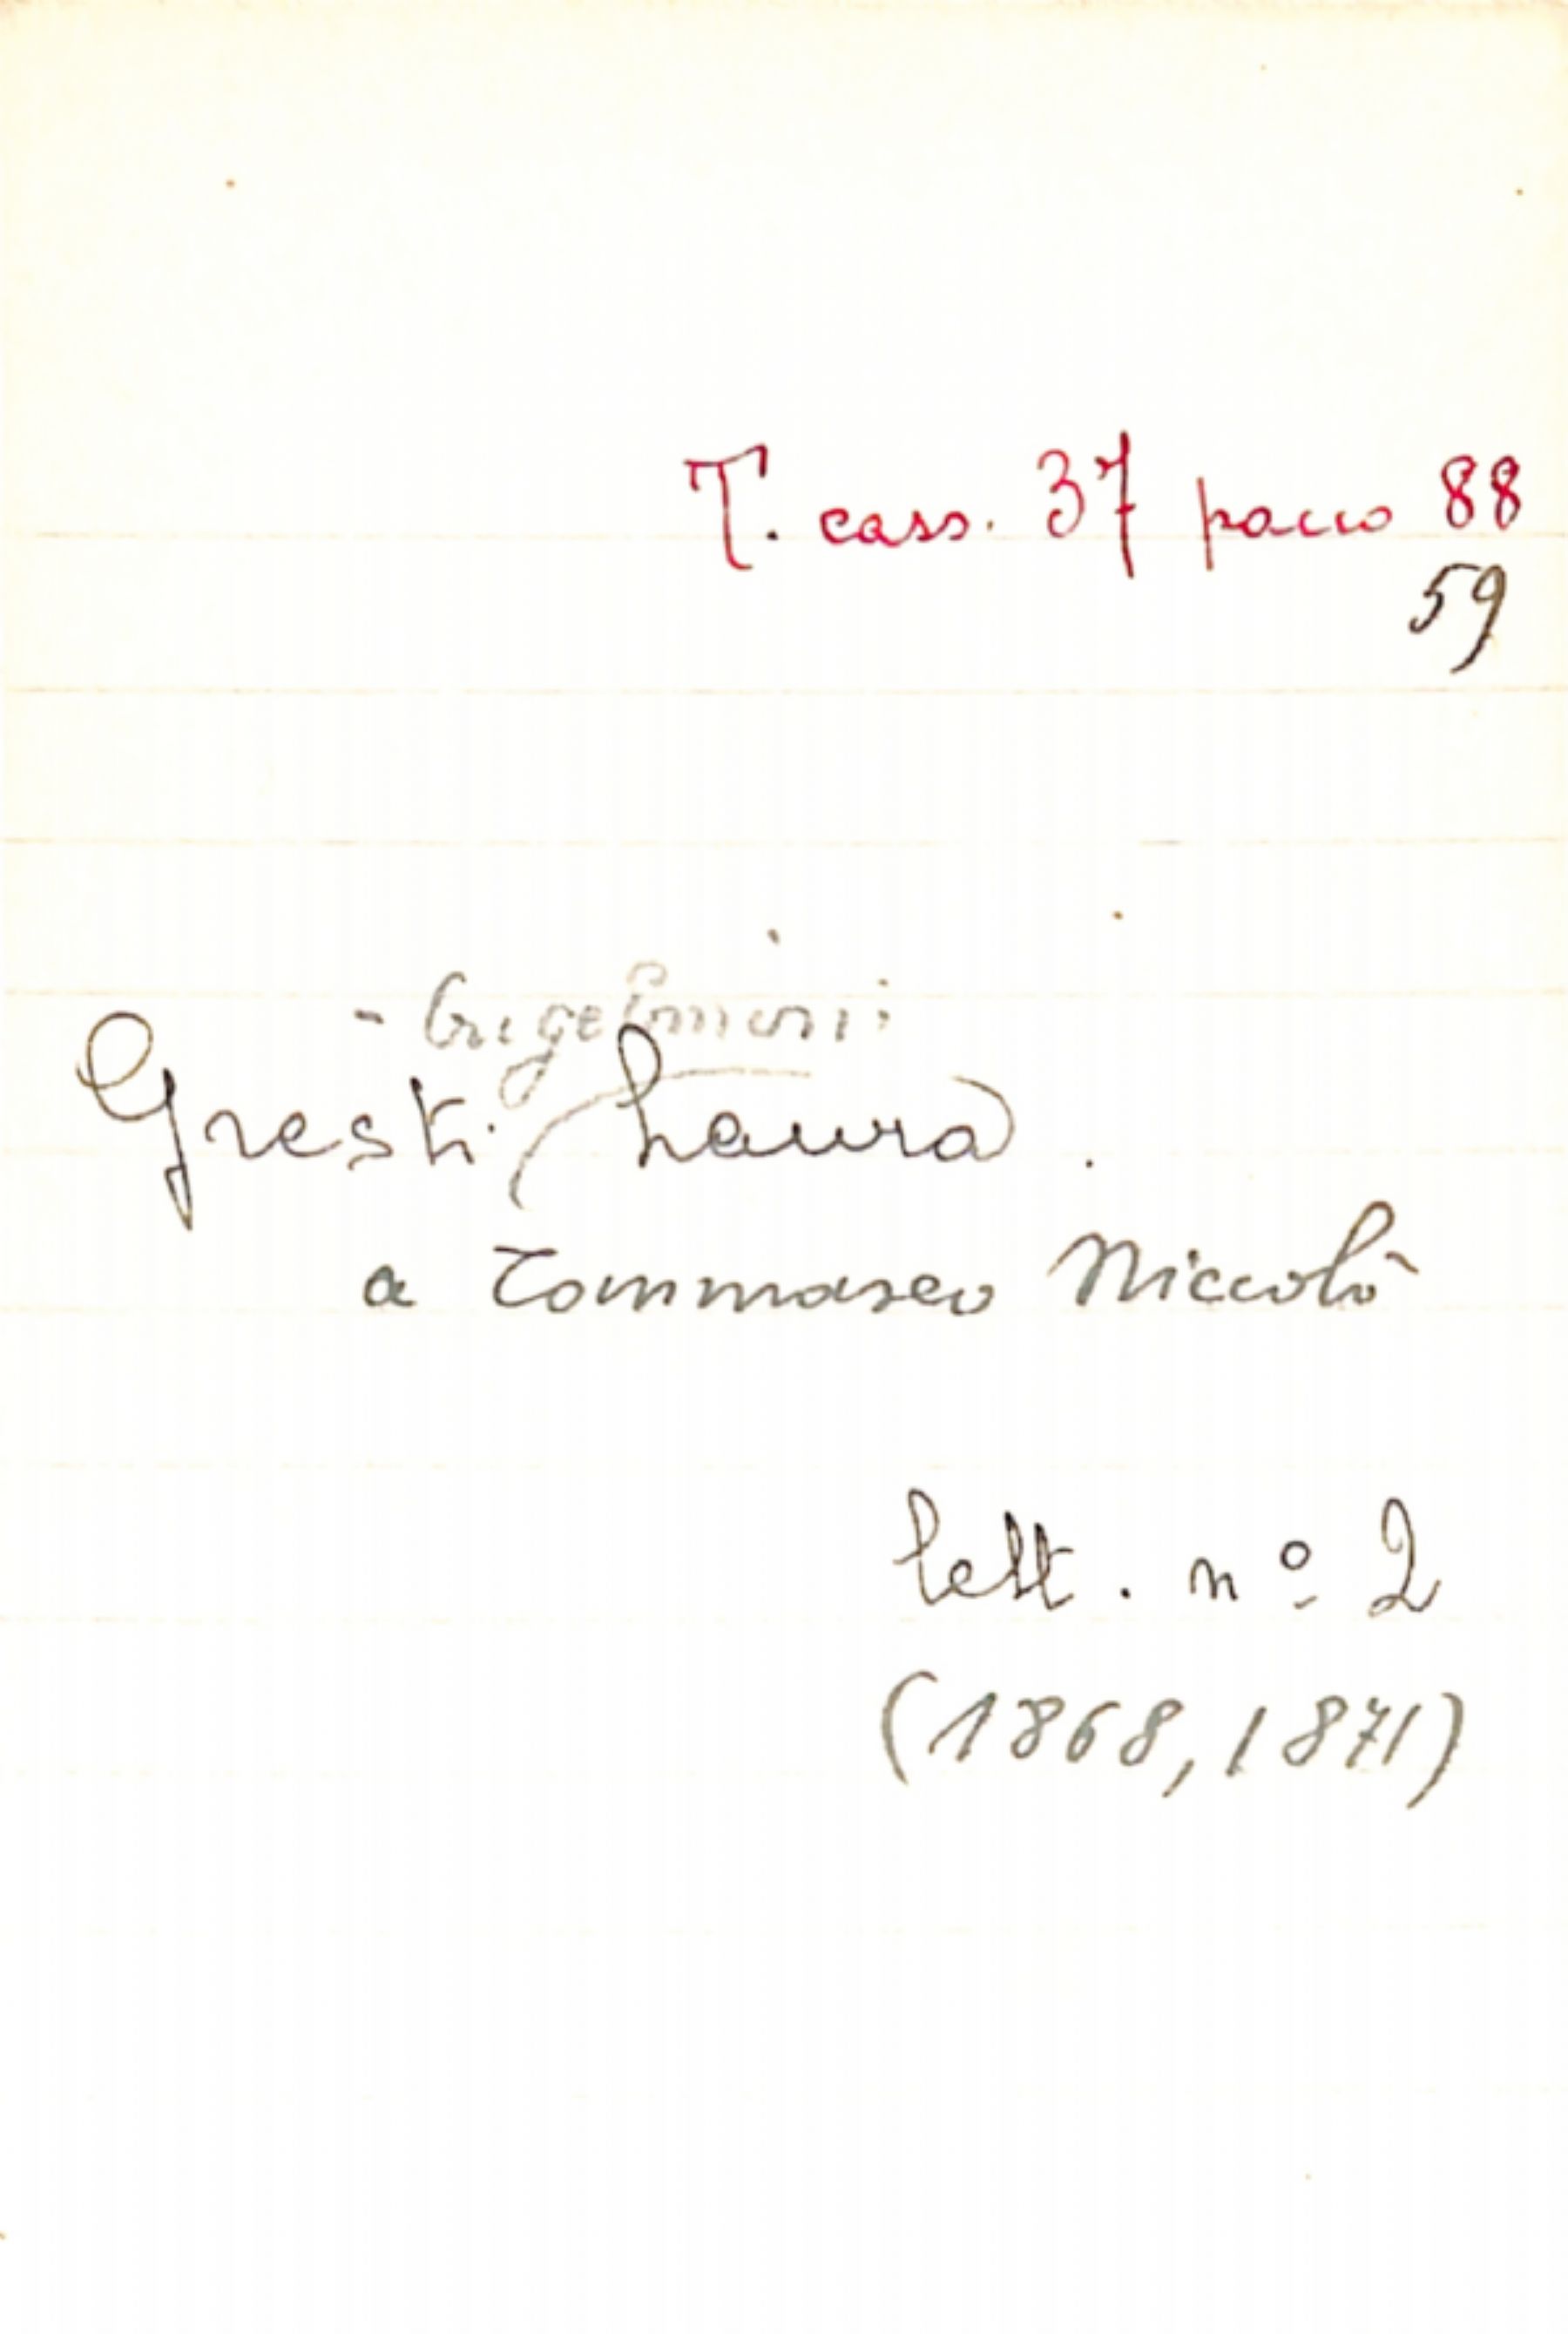 T. cass. 37 pacco 88
59
Gresti Laura.
a Tommaseo Niccolò
lett. nº 2
(1868, 1871)